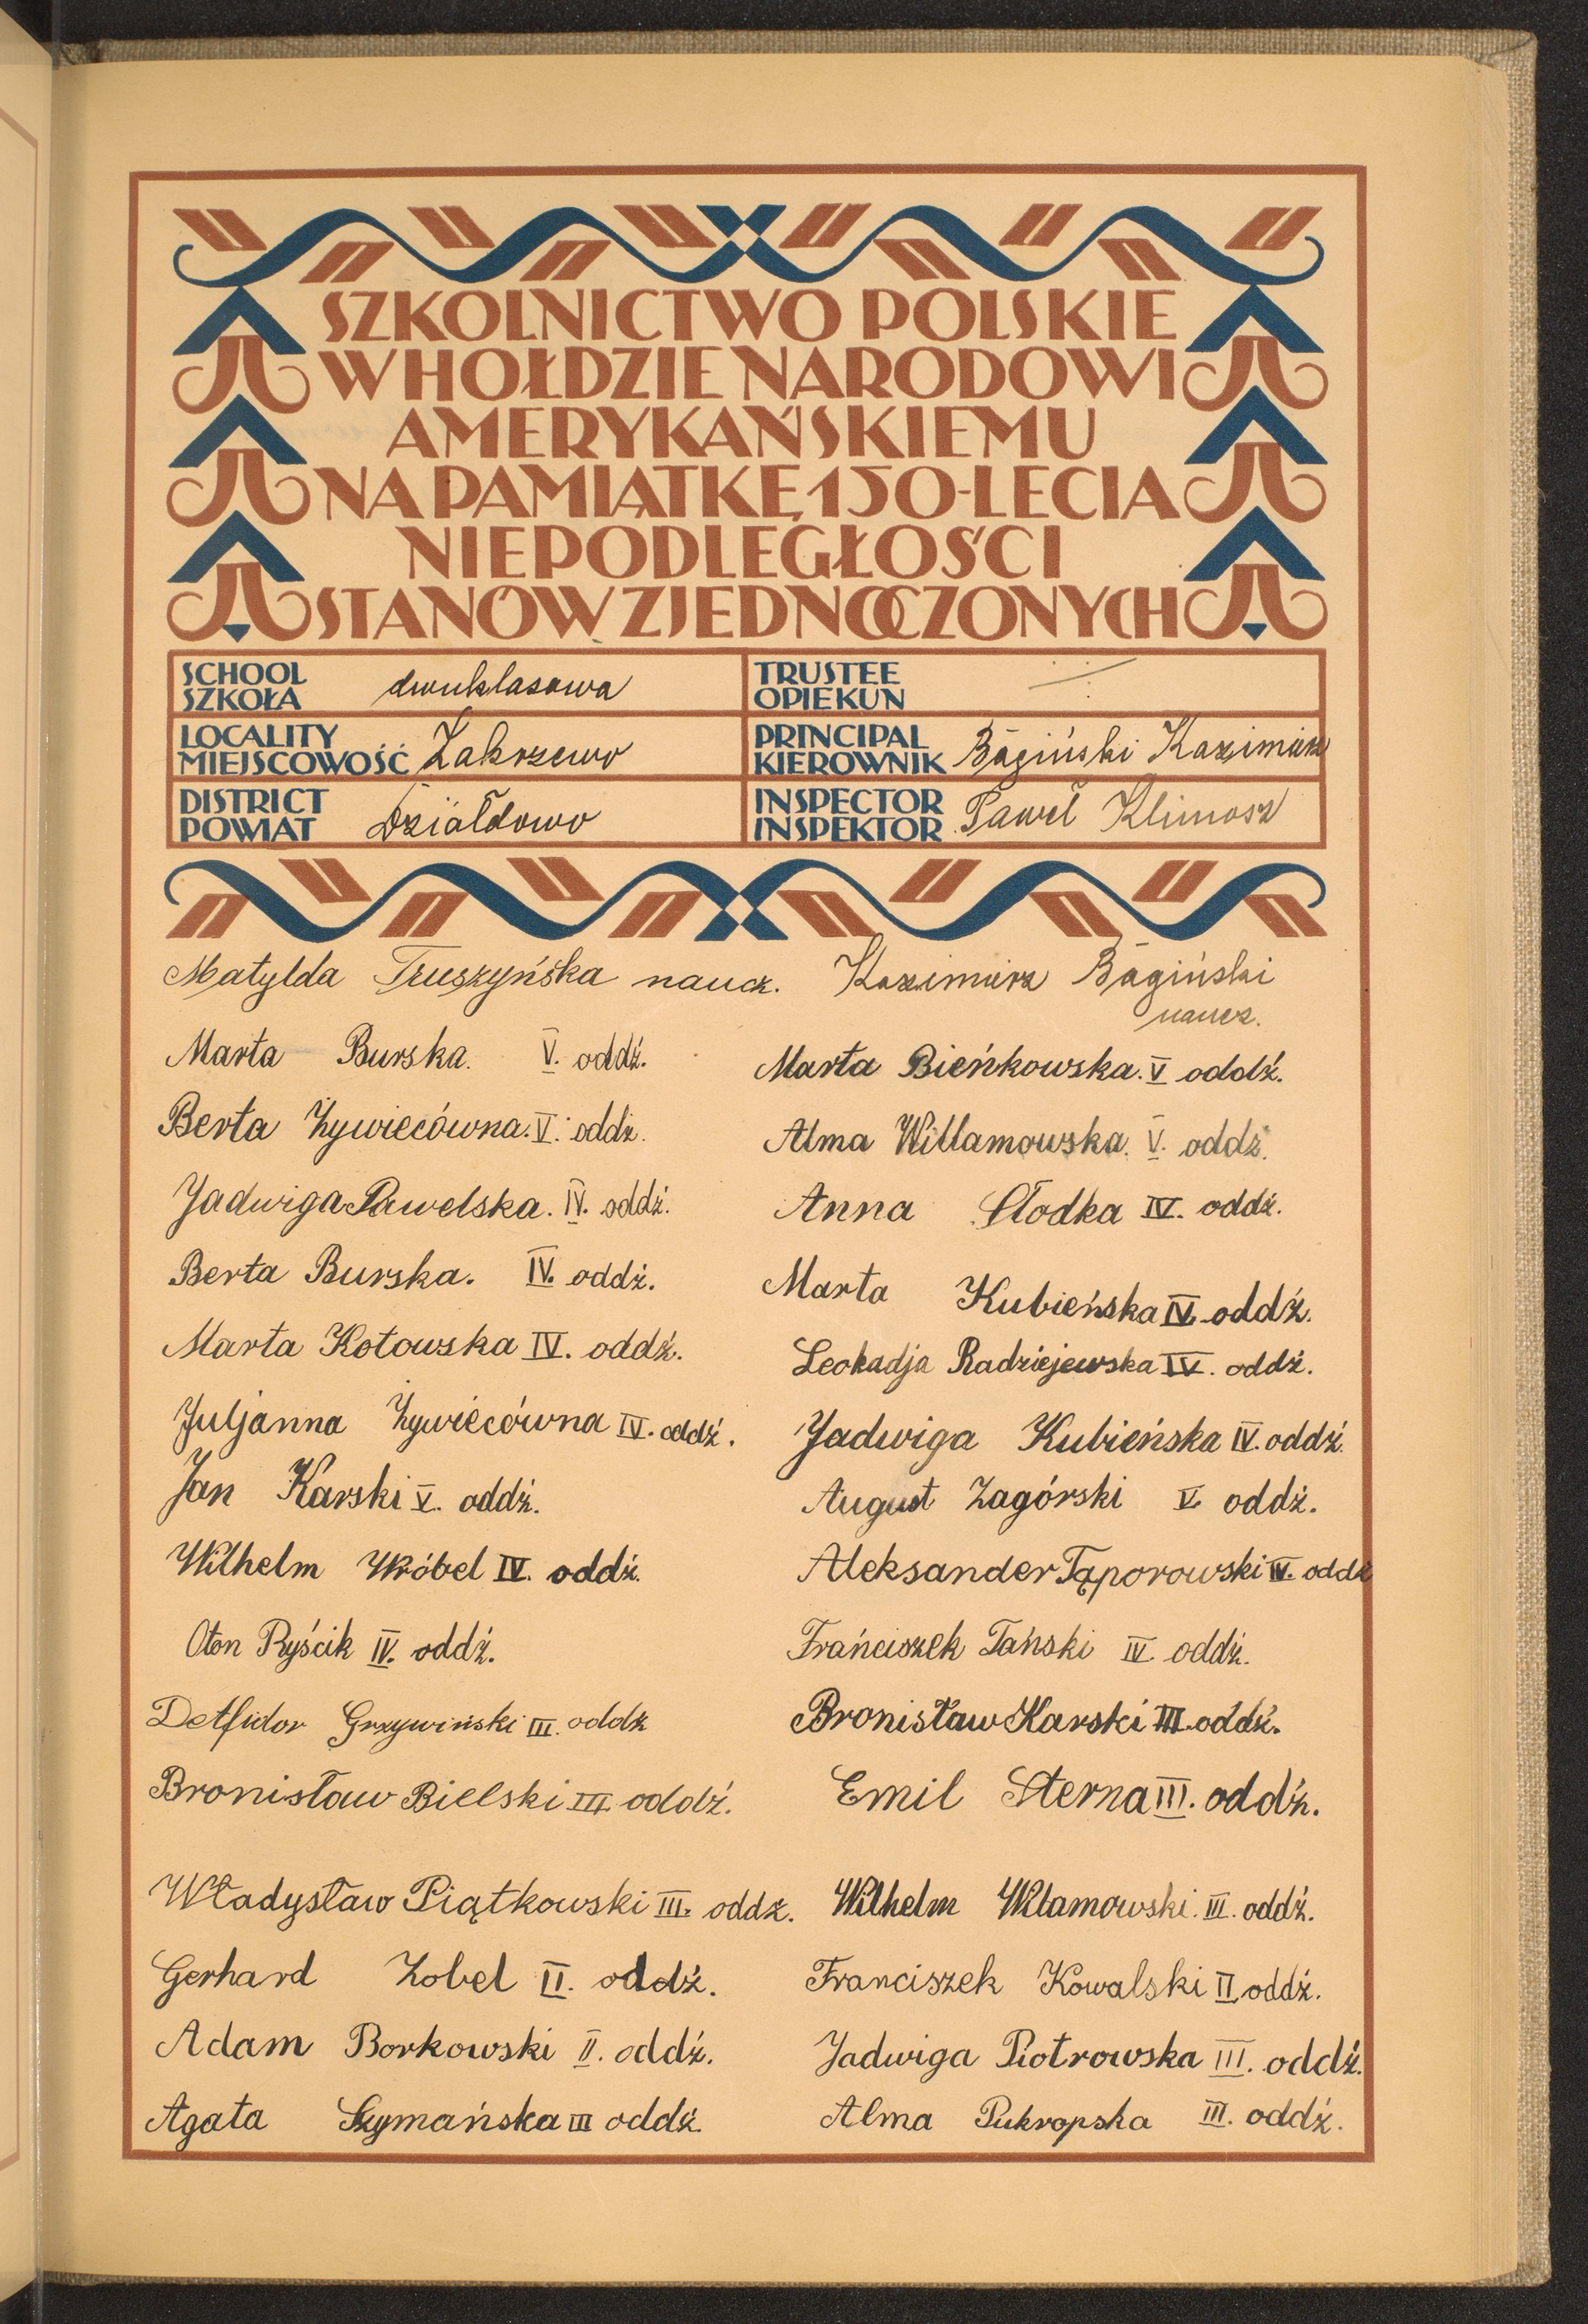 SZKOLNICTWO POLSKIE
W HOŁDZIE NARODOWI
AMERYKAŃSKIEMU
NA PAMIĄTKĘ 150-LECIA
NIEPODLEGŁOŚCI
STANÓW ZJEDNOCZONYCH
SCHOOL
SZKOŁA dwuklasowa
TRUSTEE
OPIEKUN
LOCALITY
MIEJSCOWOŚĆ Zakrzewo
PRINCIPAL
KIEROWNIK Bagiński Kazimierz
DISTRICT
POWIAT Działdowo
INSPECTOR
INSPEKTOR Paweł Klimosz
Matylda Truszyńska naucz. Kazimierz Bagiński
naucz.
Marta Burska. V. oddź.
Marta Bieńkowska. V oddź.
Berta Żywiecówna. V. oddz.
Alma Willamowska. V. oddź.
Jadwiga Pawelska. IV. oddź.
Anna Słodka IV. oddź.
Berta Burska. IV. oddź.
Marta Kubieńska IV. oddź.
Marta Kotowska IV. oddź.
Leokadja Radziejewska IV. oddź.
Juljanna Żywiecówna IV. oddź.
Jadwiga Kubieńska IV. oddź.
Jan Karski V. oddź.
August Zagórski V. oddź.
Wilhelm Wróbel IV. oddź.
Aleksander Tąporowski IV. oddz
Oton Ryścik IV. oddź.
Frańciszek Tański IV oddź.
Grzywiński III. oddz
Bronisław Karski III. oddź.
Bronisław Bielski III oddź.
Emil Sterna III. oddź.
Władysław Piątkowski III. oddz.
Wilhelm Wilamowski. III. oddź.
Gerhard Zobel II. oddź.
Franciszek Kowalski II oddź.
Adam Borkowski II. oddź.
Jadwiga Piotrowska III. oddź.
Agata Szymańska III oddź.
Alma Pukropska III. oddź.